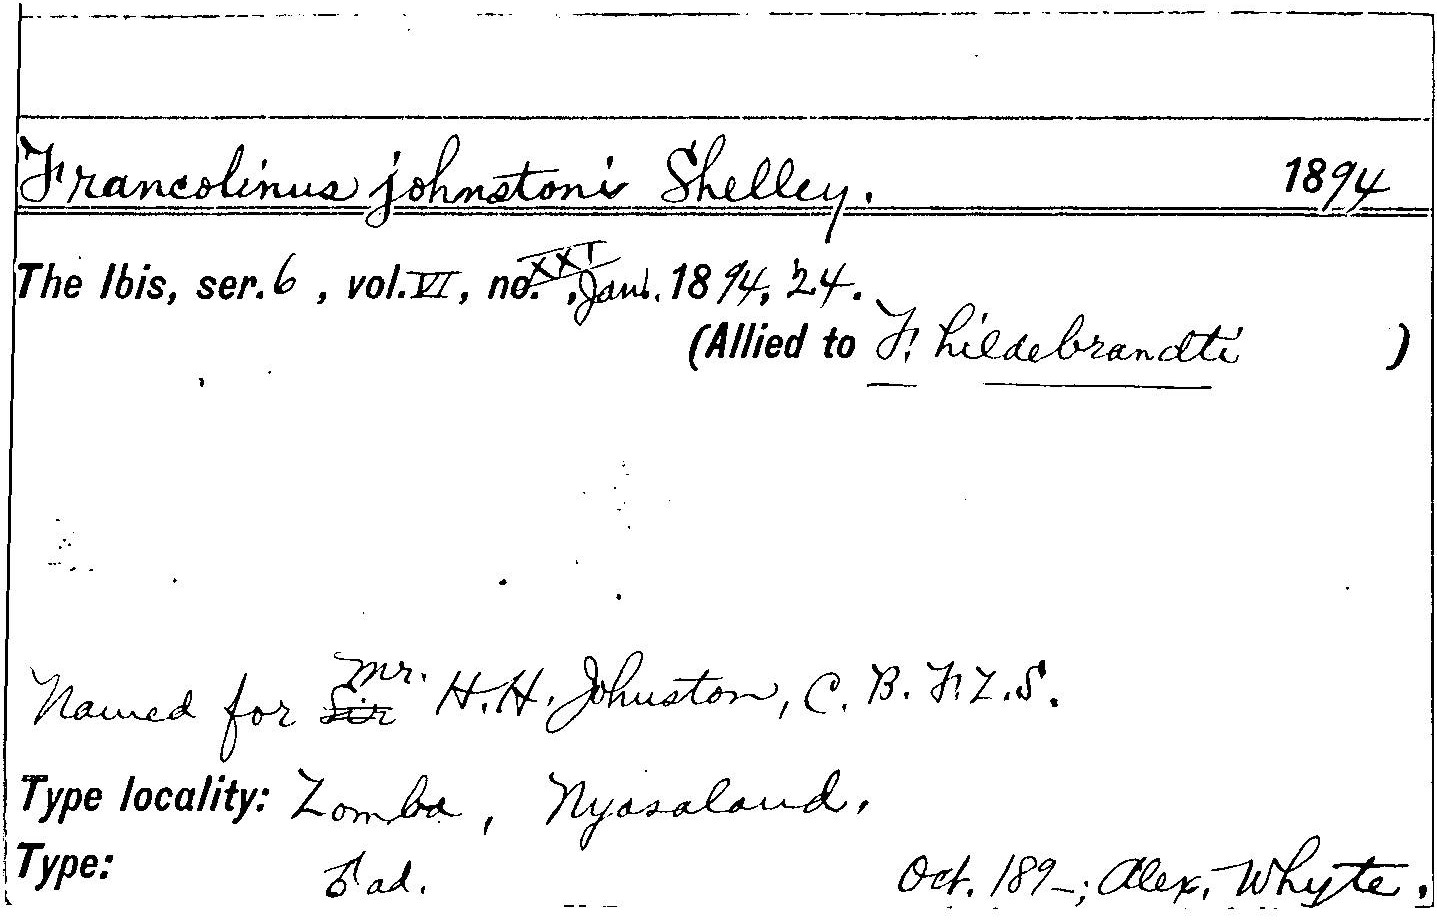 Francolinus johnstoni Shelley. 1894
The Ibis, ser. 6, vol. VI, no. XXI, Jan. 1894, 24.
(Allied to F. hildebrandti )
Named for Sir Mr. H. H. Johnston, C. B. F. Z. S.
Type locality: Zomba, Nyasaland.
Type: ♂ ad. Oct. 189-; Alex. Whyte.